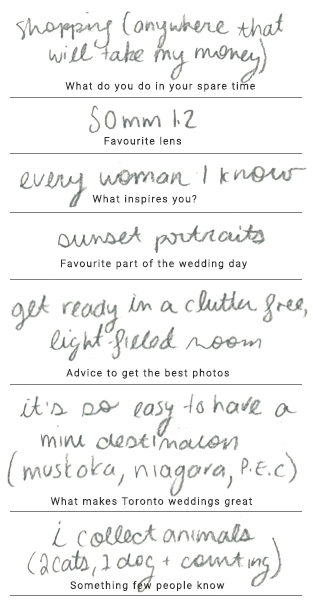 shopping (anywhere that
will take my money)
What do you do in your spare time
50mm 1.2
Favourite lens
every woman I know
What inspires you?
sunset portraits
Favourite part of the wedding day
get ready in a clutter free,
light-filled room
Advice to get the best photos
it's so easy to have a
mini destination
(muskoka, niagara, P.E.C)
What makes Toronto weddings great
i collect animals
(2 cats, 1 dog + counting)
Something few people know